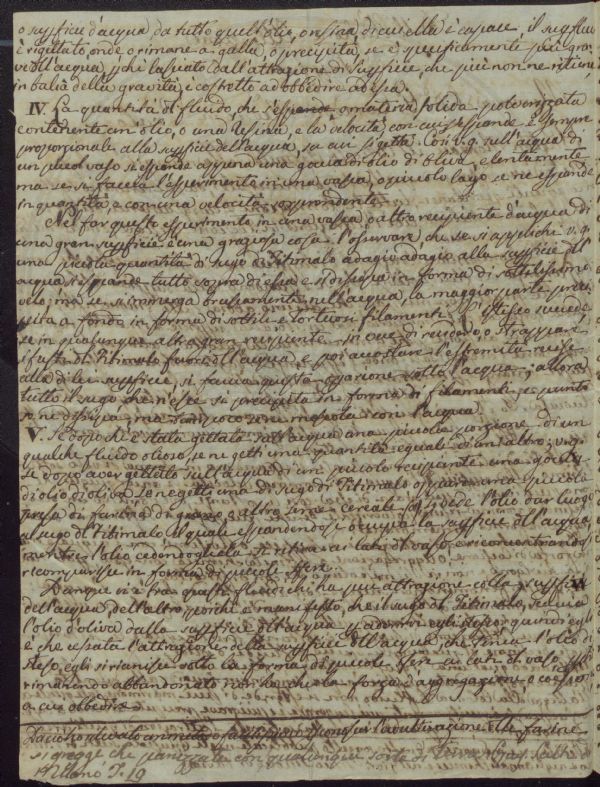 o superficie d'acqua da tutto quell'olio, o resina di cui ella è capace, il superfluo
è rigettato, onde o rimane a galla, o precipita, se è specificamente più gra-
ve dell'acqua, perchè lasciato dall'attrazione di superficie, che più non ne ritiene
in balìa della gravità, è costretto ad obbedire ad essa.
IV. La quantità del fluido, che si espande o materia solida polverizzata
contenente un'olio, o una resina, e la velocità con cui si espande è sempre
proporzionale alla superficie dell'acqua, su cui si getta. Così v.g. sull'acqua di
un piccol vaso si espande appena una goccia di olio di Oliva, e lentamente
ma se si faccia l'esperimento in una vasca, o piccolo lago se ne espande
in quantità e con una velocità sorprendente.
Nel far questo esperimento in una vasca o altro recipiente d'acqua di
una gran superficie è una graziosa cosa l'osservare, che se si applichi v.g.
una piccola quantità di sugo di Titimalo adagio adagio alla superficie dell'
acqua si espande tutto sopra di essa e si dissipa in forma di sottilissimo
velo; ma se si immerga bruscamente nell'acqua, la maggior parte preci-
pita a fondo in forma di sottili e tortuosi filamenti. L'istesso succede
se in qualunque altro gran recipiente in vece di recidere, o strappare
i fusti del Titimalo fuori dell'acqua, e poi accostare l'estremità recise
alla di lei superficie, si faccia questa operazione sotto l'acqua; allora
tutto il sugo che n'esce si precipita in forma di filamenti, e punto
se ne dissipa, ma nemmeno se ne mescola con l'acqua.
V. Se dopo che è stata gettata sull'acqua una piccola porzione di un
qualche fluido olioso, se ne getti una quantità eguale di un altro; v.g.
se dopo aver gettato sull'acqua di un piccolo recipiente una goccia
di olio di oliva, se ne getti una di sugo di Titimalo oppure una piccola
presa di farina di grano, o altro seme cereale si vede l'olio dar luogo
al sugo del Titimalo, il quale espandendosi occupa la superficie dell'acqua
mentre l'olio cedendogliela si ritira ai lati del vaso, e riconcentrandosi
ricomparisce in forma di piccole sfere.
Dunque vi è tra questi fluidi chi ha più attrazione colla superficie
dell'acqua dell'altro, poichè è manifesto, che il sugo del Titimalo, scaccia
l'olio d'oliva dalla superficie dell'acqua per aderirvi egli stesso; quindi egli
è che cessata l'attrazione della superficie dell'acqua, che teneva l'olio di-
steso, egli si riunisce sotto la forma di piccole sfere ai lati del vaso,
rimanendo abbandonato non ha che la forza d'aggregazione, o coesione
a cui obbedire.
Da ciò ho ricavato un metodo facilissimo per conoscer l'adulterazione delle farine
si gregge che panizzate con qualunque sorta di
Milano P. 19